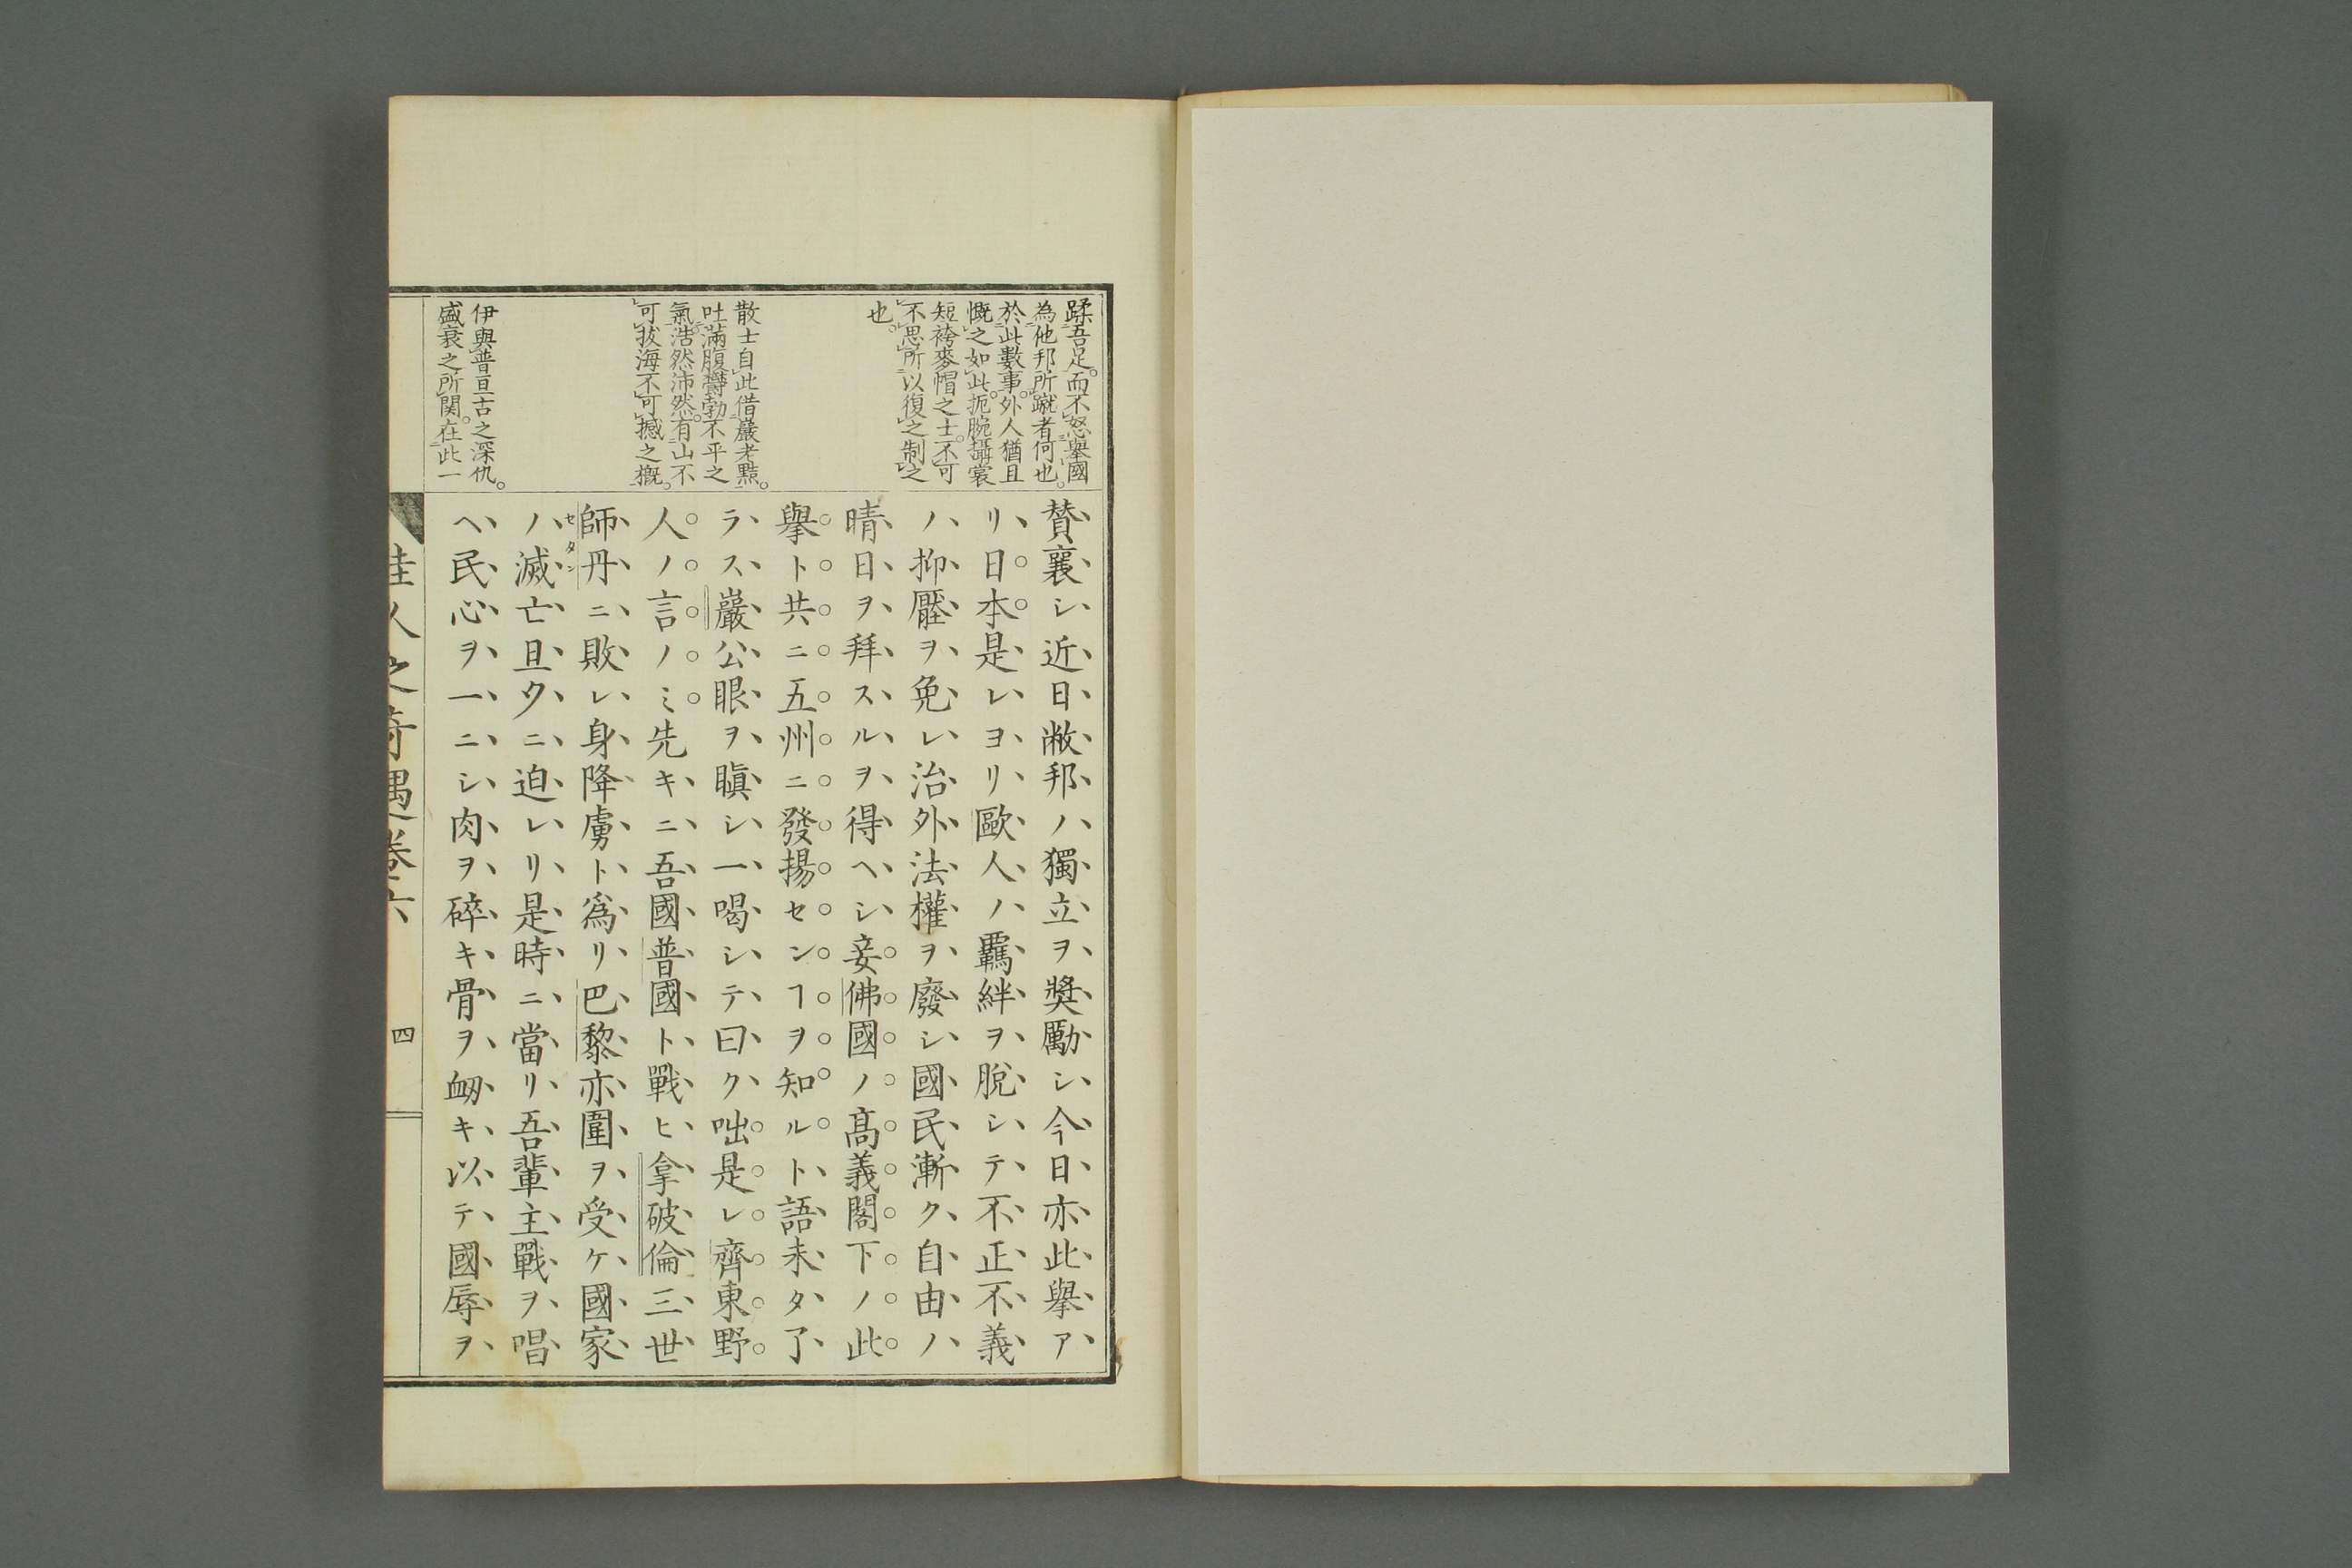 蹂吾足。而不怒。擧國
為他邦所蹴者何也。
於此數事。外人猶且
慨之如此。扼腕攝裳
短袴麥帽之士。不可
不思所以復之制之
也。
散士自此借巖老黠。
吐滿腹欝勃不平之
氣。浩然沛然。有山不
可拔海不可撼之概。
伊與普亘古之深仇。
盛衰之所関。在此一
賛襄シ近日敝邦ノ獨立ヲ奬勵シ今日亦此擧ア
リ日本是レヨリ歐人ノ羈絆ヲ脫シテ不正不義
ノ抑壓ヲ免レ治外法權ヲ廢シ國民漸ク自由ノ
晴日ヲ拜スルヲ得ヘシ妾佛國ノ髙義閣下ノ此
擧ト共ニ五州ニ發揚センヿヲ知ルト語未タ了
ラス巖公眼ヲ瞋シ一喝シテ曰ク咄是レ齊東野
人ノ言ノミ先キニ吾國普國ト戰ヒ拿破倫三世
師丹ニ敗レ身降虜ト爲リ巴黎亦圍ヲ受ケ國家
セタン
ノ滅亡旦夕ニ迫レリ是時ニ當リ吾輩主戰ヲ唱
ヘ民心ヲ一ニシ肉ヲ碎キ骨ヲ衂キ以テ國辱ヲ
佳人之奇遇卷六
四